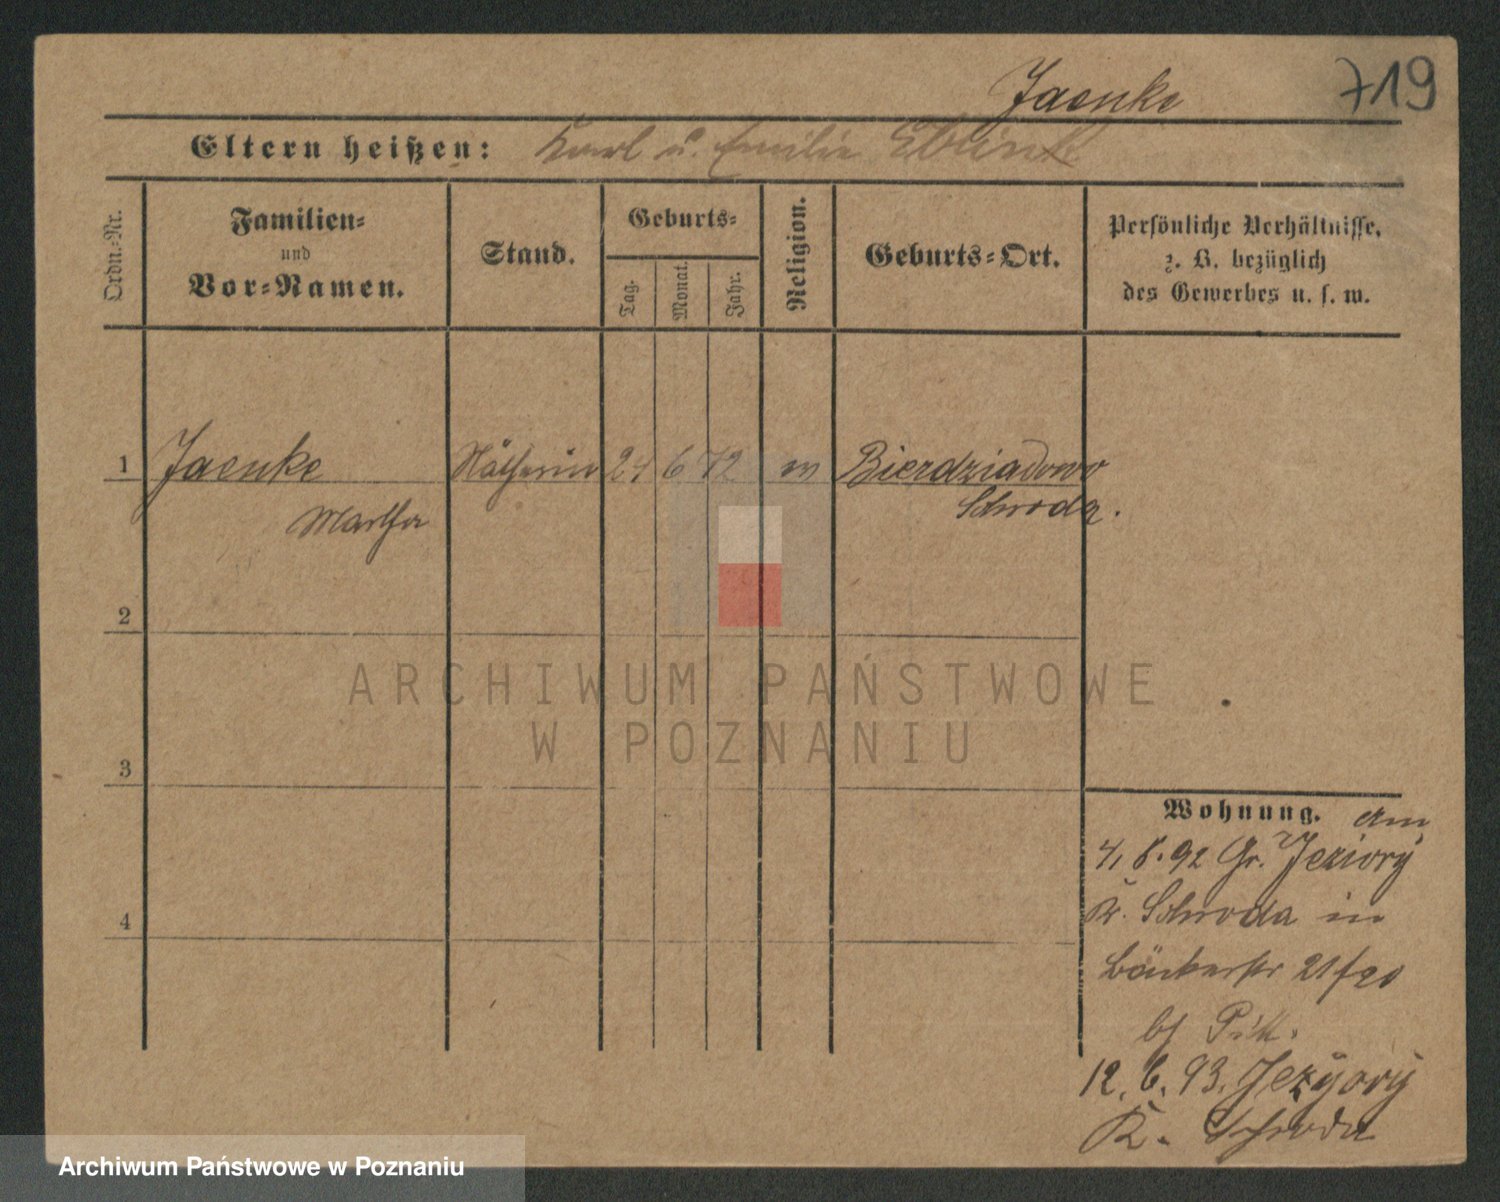 719
Jaenke
Eltern heißen: Karl u. Emilie
Ordn.-Nr.
Familien-
und
Vor-Namen.
Stand.
Geburts-
Tag.
Monat.
Jahr.
Religion.
Geburts-Ort.
Persönliche Verhältnisse,
z. B. bezüglich
des Gewerbes u. s. w.
1 Jaenke Nätherin 24 6 72 Bierdziadowo
Martha Schroda.
2
ARCHIWUM PAŃSTWOWE
W POZNANIU
3
Wohnung. am
4. 8. 92 Gr. Jeziory
Kr. Schroda in
4
Bäckerstr 21/20
bf
12. 6. 93. Jezyory
K. Schroda
Archiwum Państwowe w Poznaniu